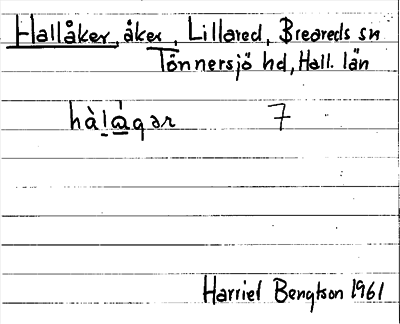 Hallåker, åker, Lillared, Breareds sn
Tönnersjö hd, Hall. län
hàlågər 7
Harriet Bengtson 1961